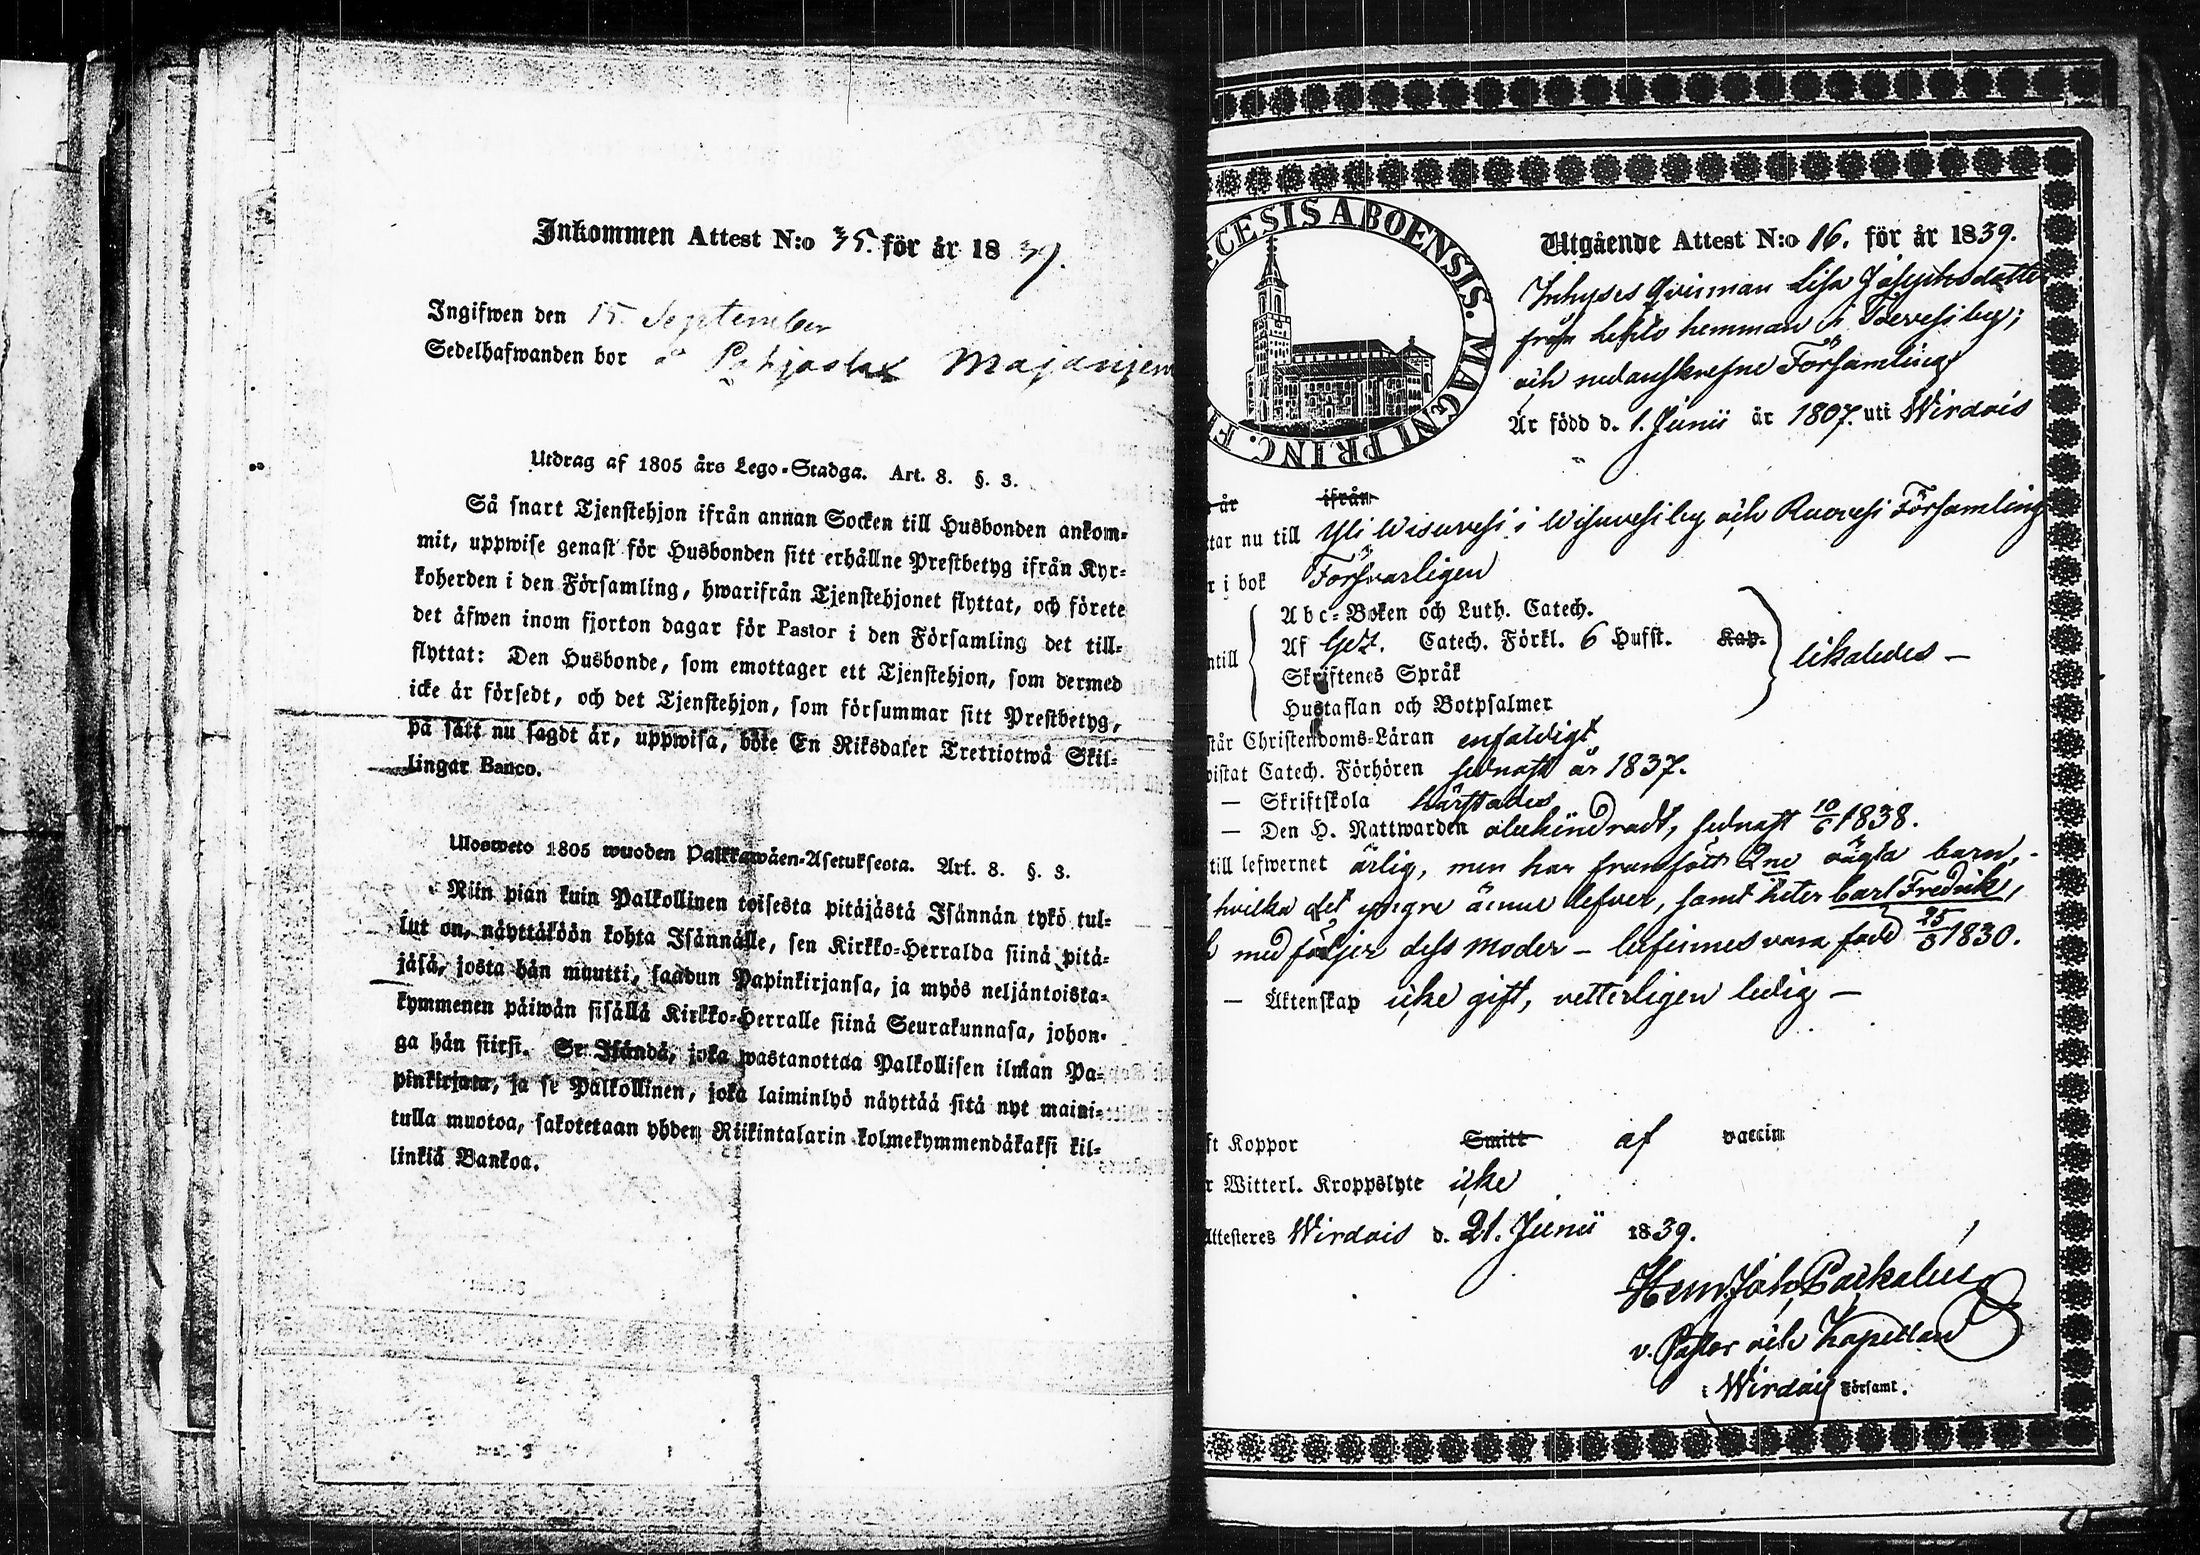 Inkommen Attest N:o 35. för år 1839.
Ingifwen den 15. September
Sedelhafwanden bor
Utdrag af 1805 års Lego-Stadga. Art. 8. §. 3.
Så snart Tjenstehjon ifrån annan Socken till Husbonden ankom-
mit, uppwise genast för Husbonden sitt erhållne Prestbetyg ifrån Kyr-
koherden i den Församling, hwarifrån Tjenstehjonet flyttat, och förete
det äfwen inom fjorton dagar för Pastor i den Församling det till-
flyttat: Den Husbonde, som emottager ett Tjenstehjon, som dermed
icke är försedt, och det Tjenstehjon, som försummar sitt Prestbetyg,
på sätt nu sagdt är, uppwisa, böte En Riksdaler Trettiotwå Skil-
lingar Banco.
Ulosweto 1805 wuoden Palkkawäen-Asetuksesta. Art. 8. §. 3.
Niin pian kuin Palkollinen toisesta pitäjästä Isännän tykö tul-
lut on, näyttäköön kohta Isännälle, sen Kirkko-Herralda siinä pitä-
jäsä, josta hän muutti, saadun Papinkirjansa, ja myös neljäntoista-
kymmenen päiwän sisällä Kirkko-Herralle siinä Seurakunnasa, johon-
ga hän siirsi. Se Isändä, joka wastanottaa Palkollisen ilman Pa-
pinkirjata, ja se Palkollinen, joka laiminlyö näyttää sitä nyt maini-
tulla muotoa, sakotetaan yhden Riikintalarin kolmekymmendäkaksi kil-
linkiä Bankoa.
ECESIS ABOENSIS. MAGNI PRINC. F
Utgående Attest N:o 16. för år 1839.
Inhyses Qvinnan Lisa Josephsdotter
från hemman i by;
och nedanskrefne Församling
Är född d. 1. Junii år 1807. uti Wirdois
år ifrån
tar nu till Yli Wisuvesi i Wisuvesi by och Ruovesi Församling
r i bok Försvarligen
Abc-Boken och Luth. Catech.
ntill Af Gez. Catech. Förkl. 6 Hufst. Kap. likaledes —
Skriftenes Språk
Hustaflan och Botpsalmer
står Christendoms-Läran enfaldigt
vistat Catech. Förhören sednast år 1837.
— Skriftskola härstädes
— Den H. Nattwarden obehindradt, sednast 10/6 1838.
till lefwernet ärlig, men har framfödt 2ne oägta barn,
hvilka det yngre ännu lefver, samt heter Carl Fredrik,
medföljer dess Moder — befinnes vara född 25/3 1830.
— Äktenskap icke gift, vetterligen ledig —
ft Koppor Smitt af vaccin
r Witterl. Kroppslyte icke
Attesteres Wirdois d. 21. Junii 1839.
Henr. Joh.
v. Pastor och Kapellan
i Wirdois Församl.